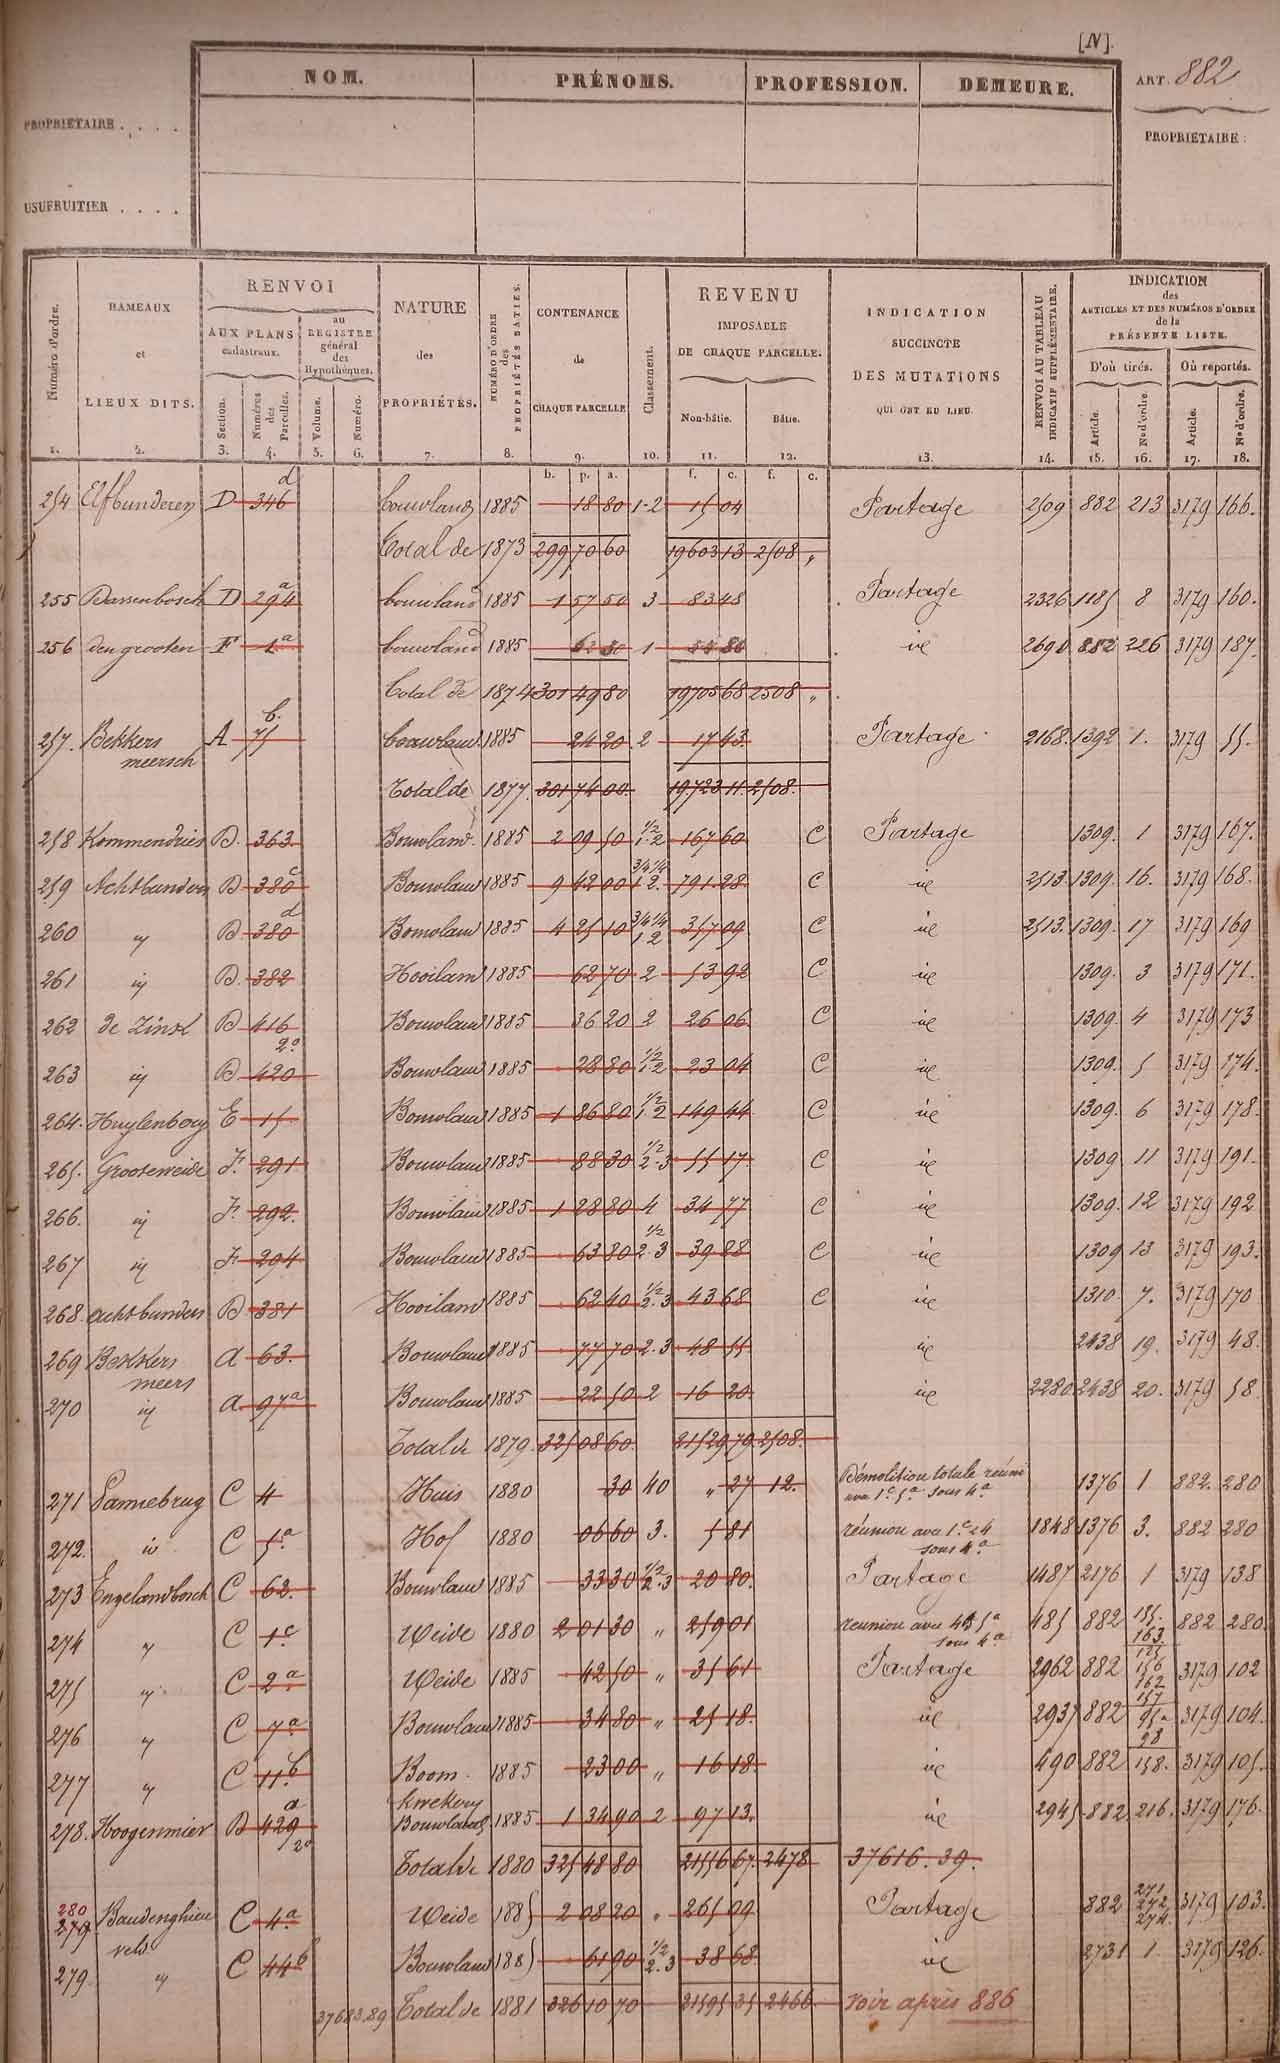 [N].
NOM. PRÉNOMS. PROFESSION. DEMEURE. ART. 882
PROPRIÉTAIRE . . . .
PROPRIÉTAIRE :
USUFRUITIER . . . .
Numéro d'ordre. 1.
HAMEAUX et LIEUX DITS. 2.
RENVOI
AUX PLANS cadastraux.
Section. 3.
Numéros des Parcelles. 4.
au REGISTRE général des Hypothèques.
Volume. 5.
Numéro. 6.
NATURE des PROPRIÉTÉS. 7.
NUMÉRO D'ORDRE des PROPRIÉTÉS BATIES. 8.
CONTENANCE de CHAQUE PARCELLE 9.
Classement. 10.
REVENU IMPOSABLE DE CHAQUE PARCELLE.
Non-bâtie. 11.
Bâtie. 12.
INDICATION SUCCINCTE DES MUTATIONS QUI ONT EU LIEU. 13.
RENVOI AU TABLEAU INDICATIF SUPPLÉMENTAIRE. 14.
INDICATION des ARTICLES ET DES NUMÉROS D'ORDRE de la PRÉSENTE LISTE.
D'où tirés. Où reportés.
Article. 15.
No d'ordre. 16.
Article. 17.
No d'ordre. 18.
b. p. a. f. c. f. c.
254 Elfbunderen D 346 d bouwland 1885 18 80 1-2 15 04 Partage 2509 882 213 3179 166.
Total de 1873 299 70 60 19603 13 2508 "
255 Dassenbosch D 294 a bouwland 1885 1 57 50 3 83 48 Partage 2326 1185 8 3179 160.
256 den grooten F 1 a bouwland 1885 62 30 1 1 id 2690 882 226 3179 187.
Total de 1874 301 49 80 19705 68 2508 "
257. Bekkers meersch A 75 b. bouwland 1885 24 20 2 17 43. Partage 2168. 1392 1. 3179 55.
Total de 1877. 301 74 00. 19723 11. 2508.
258 Kommendries B. 363. Bouwland. 1885 2 09 50 1/2 1-2 167 60 C Partage 1309. 1 3179 167.
259 Achtbunders B 380 c Bouwland 1885 9 42 00 3/4 1/4 1 2. 791.28 C id 2513. 1309. 16. 3179 168.
260 " B 380 d Bouwland 1885 4 25 10 3/4 1/4 1 2 357 09 C id 2513. 1309. 17 3179 169
261 id B. 382 Hooiland 1885 62 70 2 53 92 C id 1309. 3 3179 171.
262 de Zinst B 416 Bouwland 1885 36 20 2 26 06 C id 1309. 4 3179 173
263 id B 420 2o Bouwland 1885 28 80 1/2 1-2 23 04 C id 1309. 5 3179 174.
264. Huylenberg E 15 Bouwland 1885 1 86 80 1/2 1-2 149 44 C id 1309. 6 3179 178.
265. Grooteweide F. 291 Bouwland 1885 88 30 1/2 2.3 55 17 C id 1309 11 3179 191.
266. id F. 292. Bouwland 1885 1 28 80 4 34 77 C id 1309. 12 3179 192
267 id F. 294 Bouwland 1885 63 80 1/2 2.3 39 88 C id 1309 13 3179 193.
268. achtbunders B 381 Hooiland 1885 62 40 1/2 2.3 43 68 C id 1310. 7. 3179 170
269 Bekkers meers A 63. Bouwland 1885 77 70 2.3 48 55 id 2438 19. 3179 48.
270 id A. 97 a Bouwland 1885 22 50 2 16 20 id 2280 2438 20. 3179 58
Total de 1879. 325 08 60. 21529 79. 2508.
271 Pannebrug C 4 Huis 1880 30 40 " 27 12. Démolition totale réuni avec 1c. 5a sous 4a 1376 1 882. 280
272. id C 5 a Hof 1880 06 60 3. 5 81 réunion avec 1c et 4 sous 4a 1848 1376 3. 882 280
273 Engelandbosch C 62. Bouwland 1885 33 30 1/2 2.3 20 80. Partage 1487 2176 1 3179 138
274 " C 1 c Weide 1880 2 01 30 " 259 01 reunion avec 4 5a sous 4a 485 882 155. 163 882 280.
275 " C 2 a Weide 1885 42 50 " 35 61 Partage 2962 882 125 156 162 3179 102
276 " C 7 a Bouwland 1885 34 80 " 25 18. id 2937 882 157 95a 98 3179 104.
277 " C 11. b Boom kwekery 1885 23 00 " 16 18. id 490 882 158. 3179 105.
278. Hoogenmier B 429 a 2o Bouwland 1885. 1 34 90 2 97 13. id 2945 882. 216. 3179 176.
Total de 1880 325 48 80 21556 67. 2478 37616. 39.
280 279 Baudenghien veld C 4. a Weide 1885 2 08 20 " 265 09 Partage 882 271 272 274. 3179 103.
279. " C 44 b Bouwland 1885 61 90 1/2 2.3 38 68. id 2731 1. 3179 126.
37683.89 Total de 1881 326 10 70 21595 35 2466. voir après 886